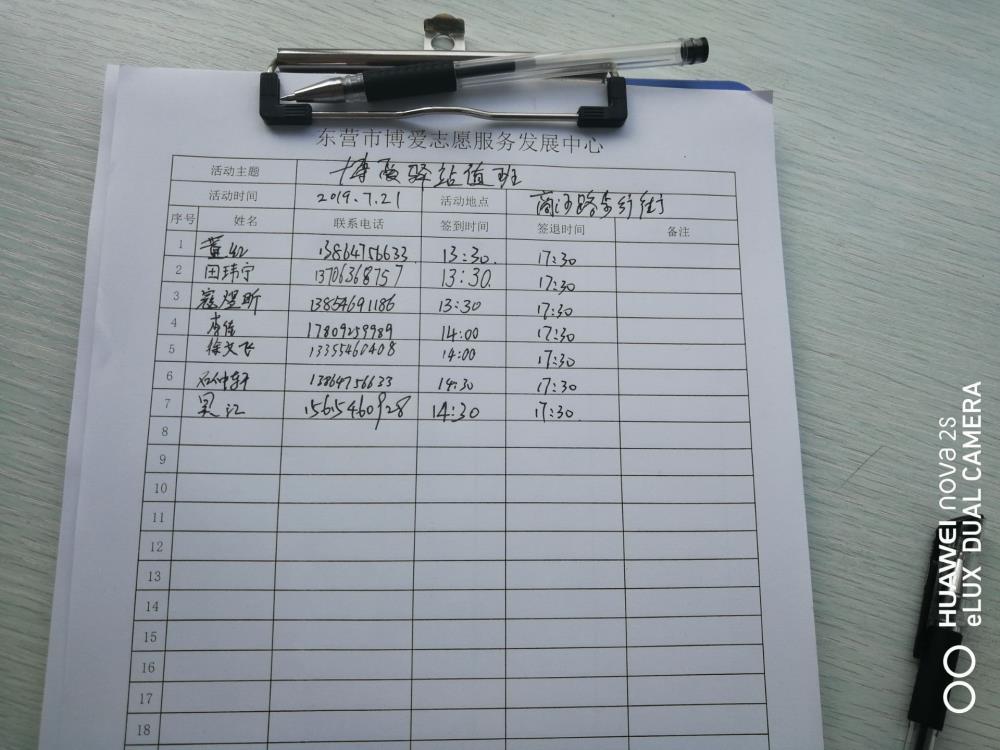 东营市博爱志愿服务发展中心
活动主题 博爱驿站值班
活动时间 2019.7.21 活动地点 商河路步行街
序号 姓名 联系电话 签到时间 签退时间 备注
1 董红 13864756633 13:30. 17:30
2 田玮宁 13706368757 13:30. 17:30
3 寇煜昕 13854691186 13:30 17:30
4 李佳 17809259989 14:00 17:30
5 徐文飞 13355460408 14:00 17:30
6 石仲轩 13864756633 14:30 17:30
7 吴江 15615460928 14:30 17:30
8
9
10
11
12
13
14
15
16
17
18
HUAWEI nova 2S
eLUX DUAL CAMERA